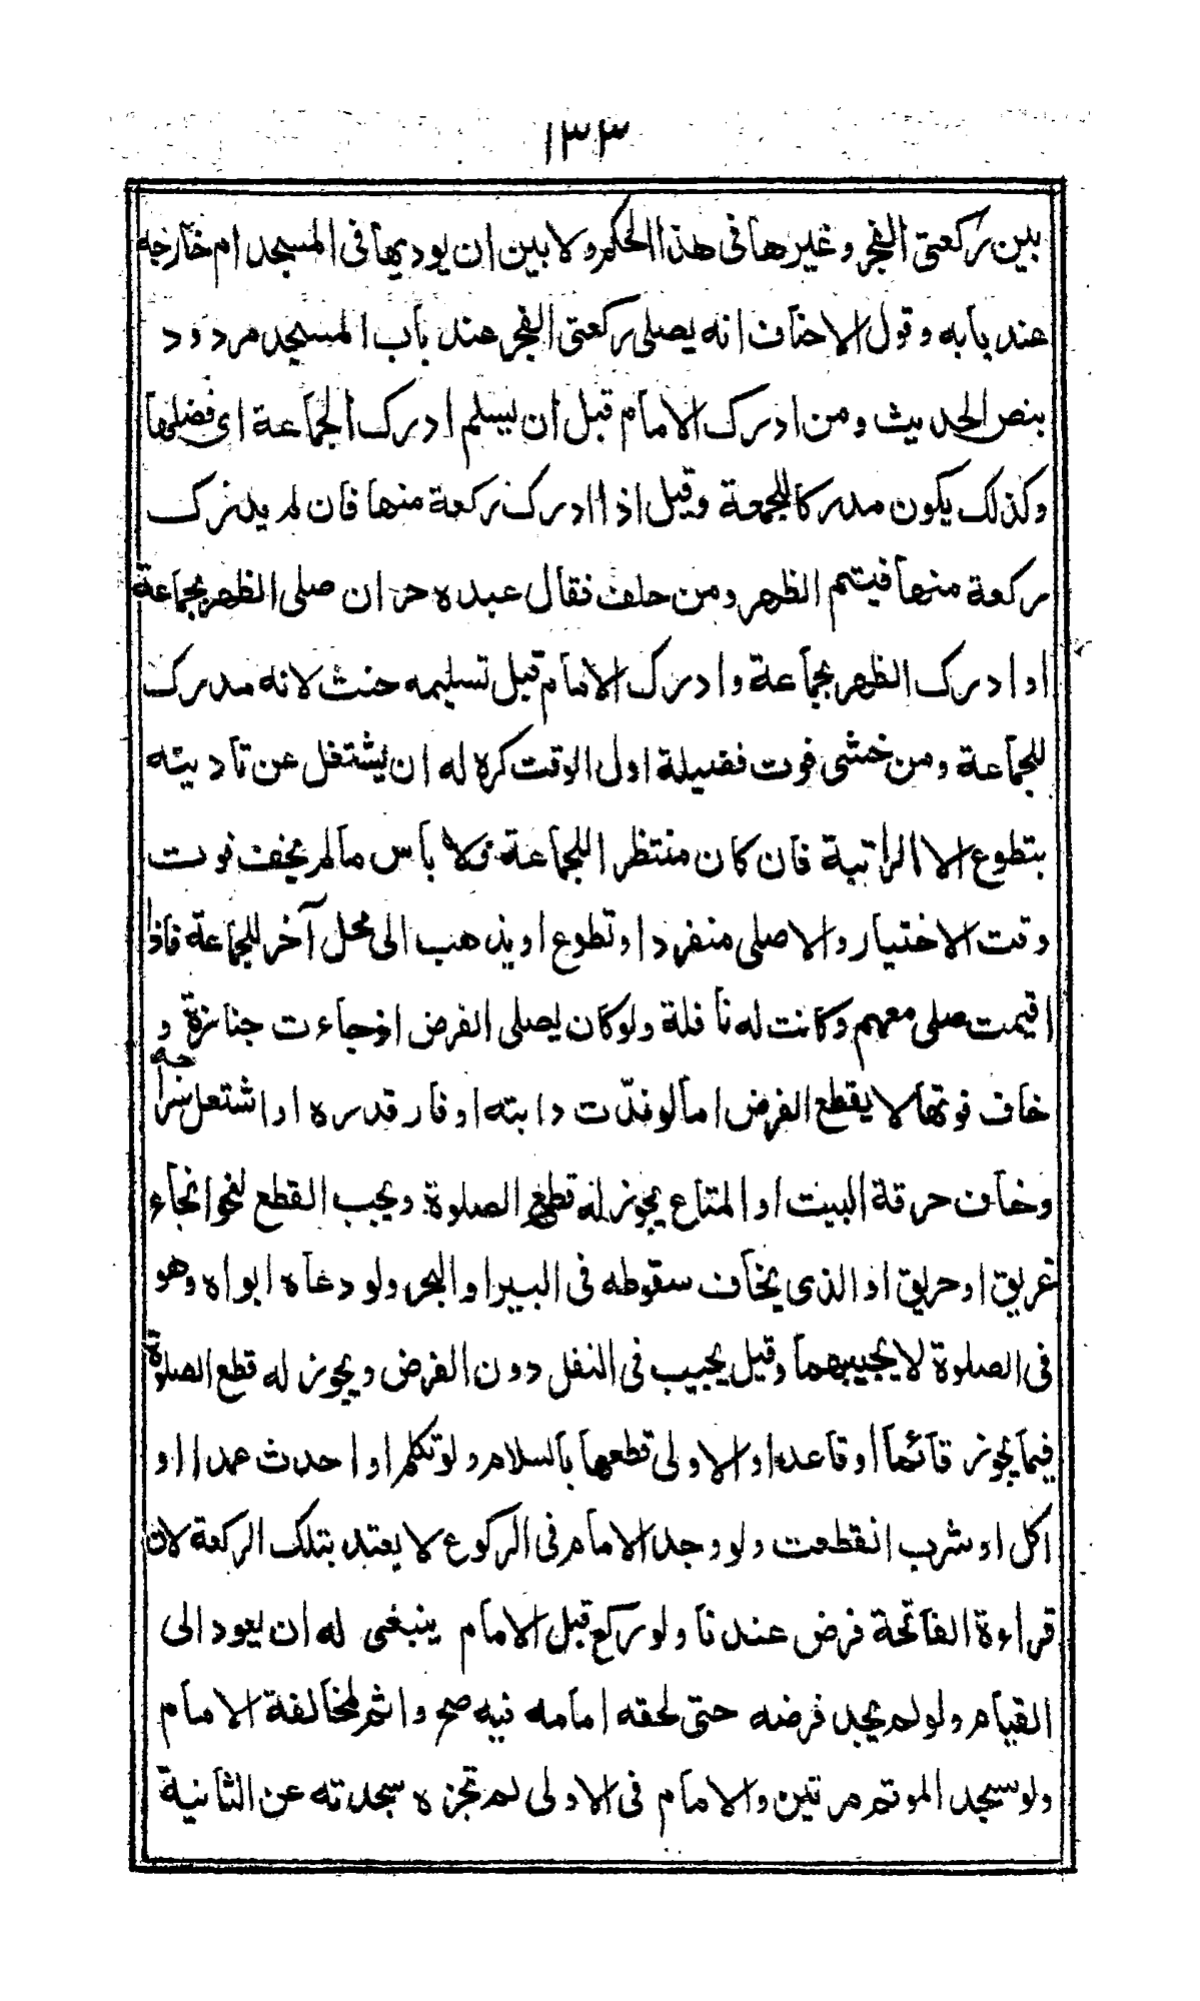 ١٣٣
بين ركعتى الفجر وغيرها فى هذا الحكم ولا بين ان يوديها فى المسجد ام خارجه
عند بابه وقول الاحناف انه يصلى ركعتى الفجر عند باب المسجد مردود
بنص الحديث ومن ادرك الامام قبل ان يسلم ادرك الجماعة اى فضلها
وكذلك يكون مدركا للجمعة وقيل اذا ادرك ركعة منها فان لم يدرك
ركعة منها فيتم الظهر ومن حلف فقال عبده حر ان صلى الظهر بجماعة
او ادرك الظهر بجماعة وادرك الامام قبل تسليمه حنث لانه مدرك
للجماعة ومن خشى فوت فضيلة اول الوقت كره له ان يشتغل عن تأديته
بتطوع الا الراتبة فان كان منتظرا للجماعة فلا بأس مالم يخف فوت
وقت الاختيار والا صلى منفردا وتطوع او يذهب الى محل آخر للجماعة فاذا
اقيمت صلى معهم وكانت له نافلة ولو كان يصلى الفرض اذ جاءت جنازة و
خاف فوتها لا يقطع الفرض اما لو ندّت دابته او فار قدره او اشتعل سراجه
وخاف حرقة البيت او المتاع يجوز له قطع الصلوة ويجب القطع لنحو انجاء
غريق او حريق او الذى يخاف سقوطه فى البير او البحر ولو دعاه ابواه وهو
فى الصلوة لا يجيبهما وقيل يجيب فى النفل دون الفرض ويجوز له قطع الصلوة
فيما يجوز قائما او قاعدا والاولى قطعها بالسلام ولو تكلم او احدث عمدا او
اكل او شرب انقطعت ولو وجد الامام فى الركوع لا يعتد بتلك الركعة لان
قراءة الفاتحة فرض عندنا ولو ركع قبل الامام ينبغى له ان يعود الى
القيام ولو لم يجد فرضه حتى لحقه امامه فيه صح واثم لمخالفة الامام
ولو سجد الموتم مرتين والامام فى الاولى لم تجزه سجدته عن الثانية